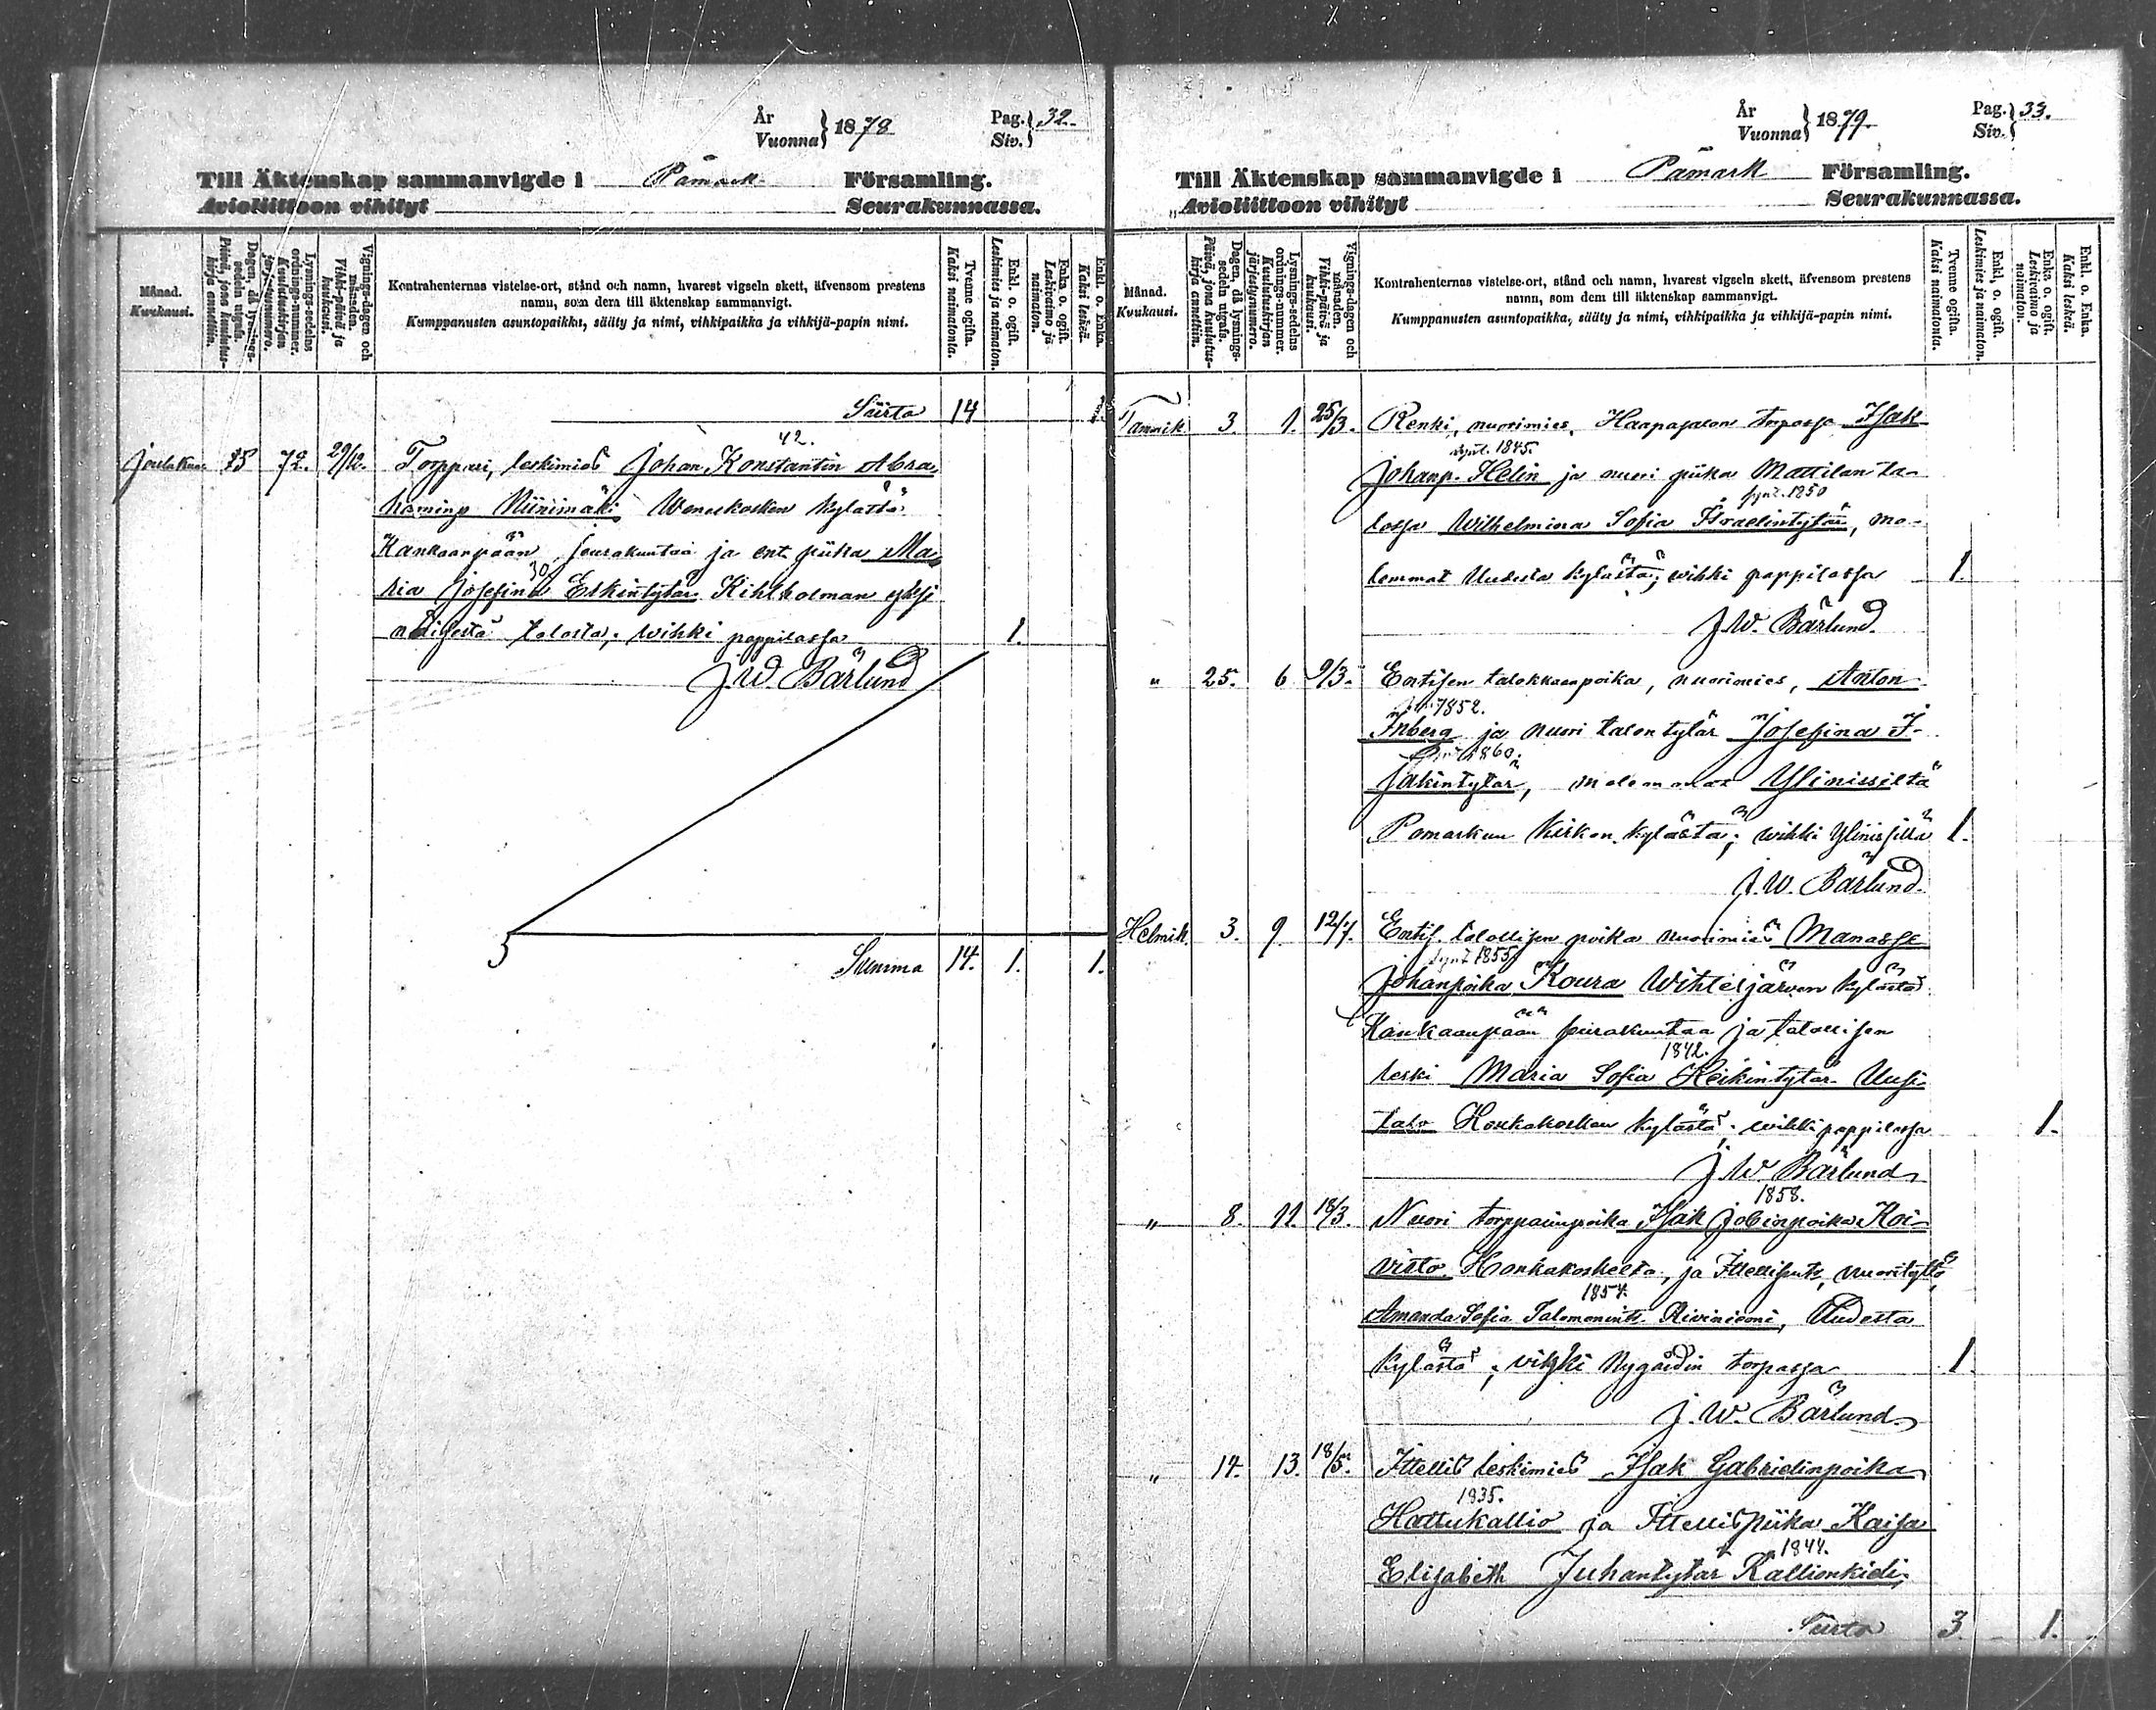 År
Vuonna } 1878
Pag.
Siv. } 32.
Till Äktenskap sammanvigde i Påmark Församling.
Avioliittoon vihityt Seurakunnassa.
Månad.
Kuukausi.
Dagen, då lysnings-sedeln utgafs.
Päivä, jona kuulutus-kirja annettiin.
Lysnings-sedelns ordnings-nummer.
Kuulutuskirjan järjestysnumero.
Vignings-dagen och månaden.
Vihki-päivä ja kuukausi.
Kontrahenternas vistelse-ort, stånd och namn, hvarest vigseln skett, äfvensom prestens
namn, som dem till äktenskap sammanvigt.
Kumppanusten asuntopaikka, sääty ja nimi, vihkipaikka ja vihkijä-papin nimi.
Tvenne ogifta.
Kaksi naimatonta.
Enkl. o. ogift.
Leskimies ja naimaton.
Enka o. ogift.
Leskivaimo ja naimaton.
Enkl. o. Enka.
Kaksi leskeä.
Siirto 14 1.
42.
Jouluk. 15 72. 29/12. Torppari, leskimies Johan Konstantin Abra
haminp Niinimäki Weneskosken kylästä
Kankaanpään seurakuntaa ja ent. piika Ma
30
ria Josefina Erkintytär Kihlholman yksi
näisestä talosta; wihki pappilassa 1.
J. W. Bärlund
Summa 14. 1. 1.
År
Vuonna } 1879.
Pag.
Siv. } 33.
Till Äktenskap sammanvigde i Påmark Församling.
Avioliittoon vihityt Seurakunnassa.
Månad.
Kuukausi.
Dagen, då lysnings-sedeln utgafs.
Päivä, jona kuulutus-kirja annettiin.
Lysnings-sedelns ordnings-nummer.
Kuulutuskirjan järjestysnumero.
Vignings-dagen och månaden.
Vihki-päivä ja kuukausi.
Kontrahenternas vistelse-ort, stånd och namn, hvarest vigseln skett, äfvensom prestens
namn, som dem till äktenskap sammanvigt.
Kumppanusten asuntopaikka, sääty ja nimi, vihkipaikka ja vihkijä-papin nimi.
Tvenne ogifta.
Kaksi naimatonta.
Enkl. o. ogift.
Leskimies ja naimaton.
Enka o. ogift.
Leskivaimo ja naimaton.
Enkl. o. Enka.
Kaksi leskeä.
Tammik. 3. 1. 25/3. Renki, nuorimies, Haapasalon torpassa Isak
synt. 1845.
Johanp. Helin ja nuori piika Mattilan ta-
synt. 1850
lossa Wilhelmina Sofia Israelintytär, mo-
lemmat Uudesta kylästä; wihki pappilassa 1.
J. W. Bärlund.
" 25. 6 9/3. Entisen talokkaanpoika, nuorimies, Anton
1852.
Inberg ja nuori talontytär Josefina I-
synt 1860.
sakintytär, molemmat Ylinissiltä
Pomarkun Kirkon kylästä; wihki Ylinissillä 1.
J. W. Bärlund.
Helmik. 3. 9. 12/7. Entis. talollisen poika nuorimies Manasse
synt 1855
Johanpoika Koura Wihteljärven kylästä
Kankaanpään seurakuntaa ja talollisen
1842.
leski Maria Sofia Heikintytär Uusi-
talo Honkakosken kylästä; wihki pappilassa 1.
J. W. Bärlund
1858.
" 8. 11. 18/3. Nuori torpparinpoika Isak Jobinpoika Koi-
visto Honkakoskelta, ja Ittellisen, nuorityttö,
1857.
Amanda Sofia Salomonint. Riviniemi, Uudesta
kylästä; vihki Nygårdin torpassa 1.
J. W. Bärlund
" 14. 13. 18/5. Ittellis leskimies Isak Gabrielinpoika
1835.
Hattukallio ja Ittellis piika Kaisa
1844.
Elisabeth Juhantytär Kallionkieli;
Siirto 3. 1.